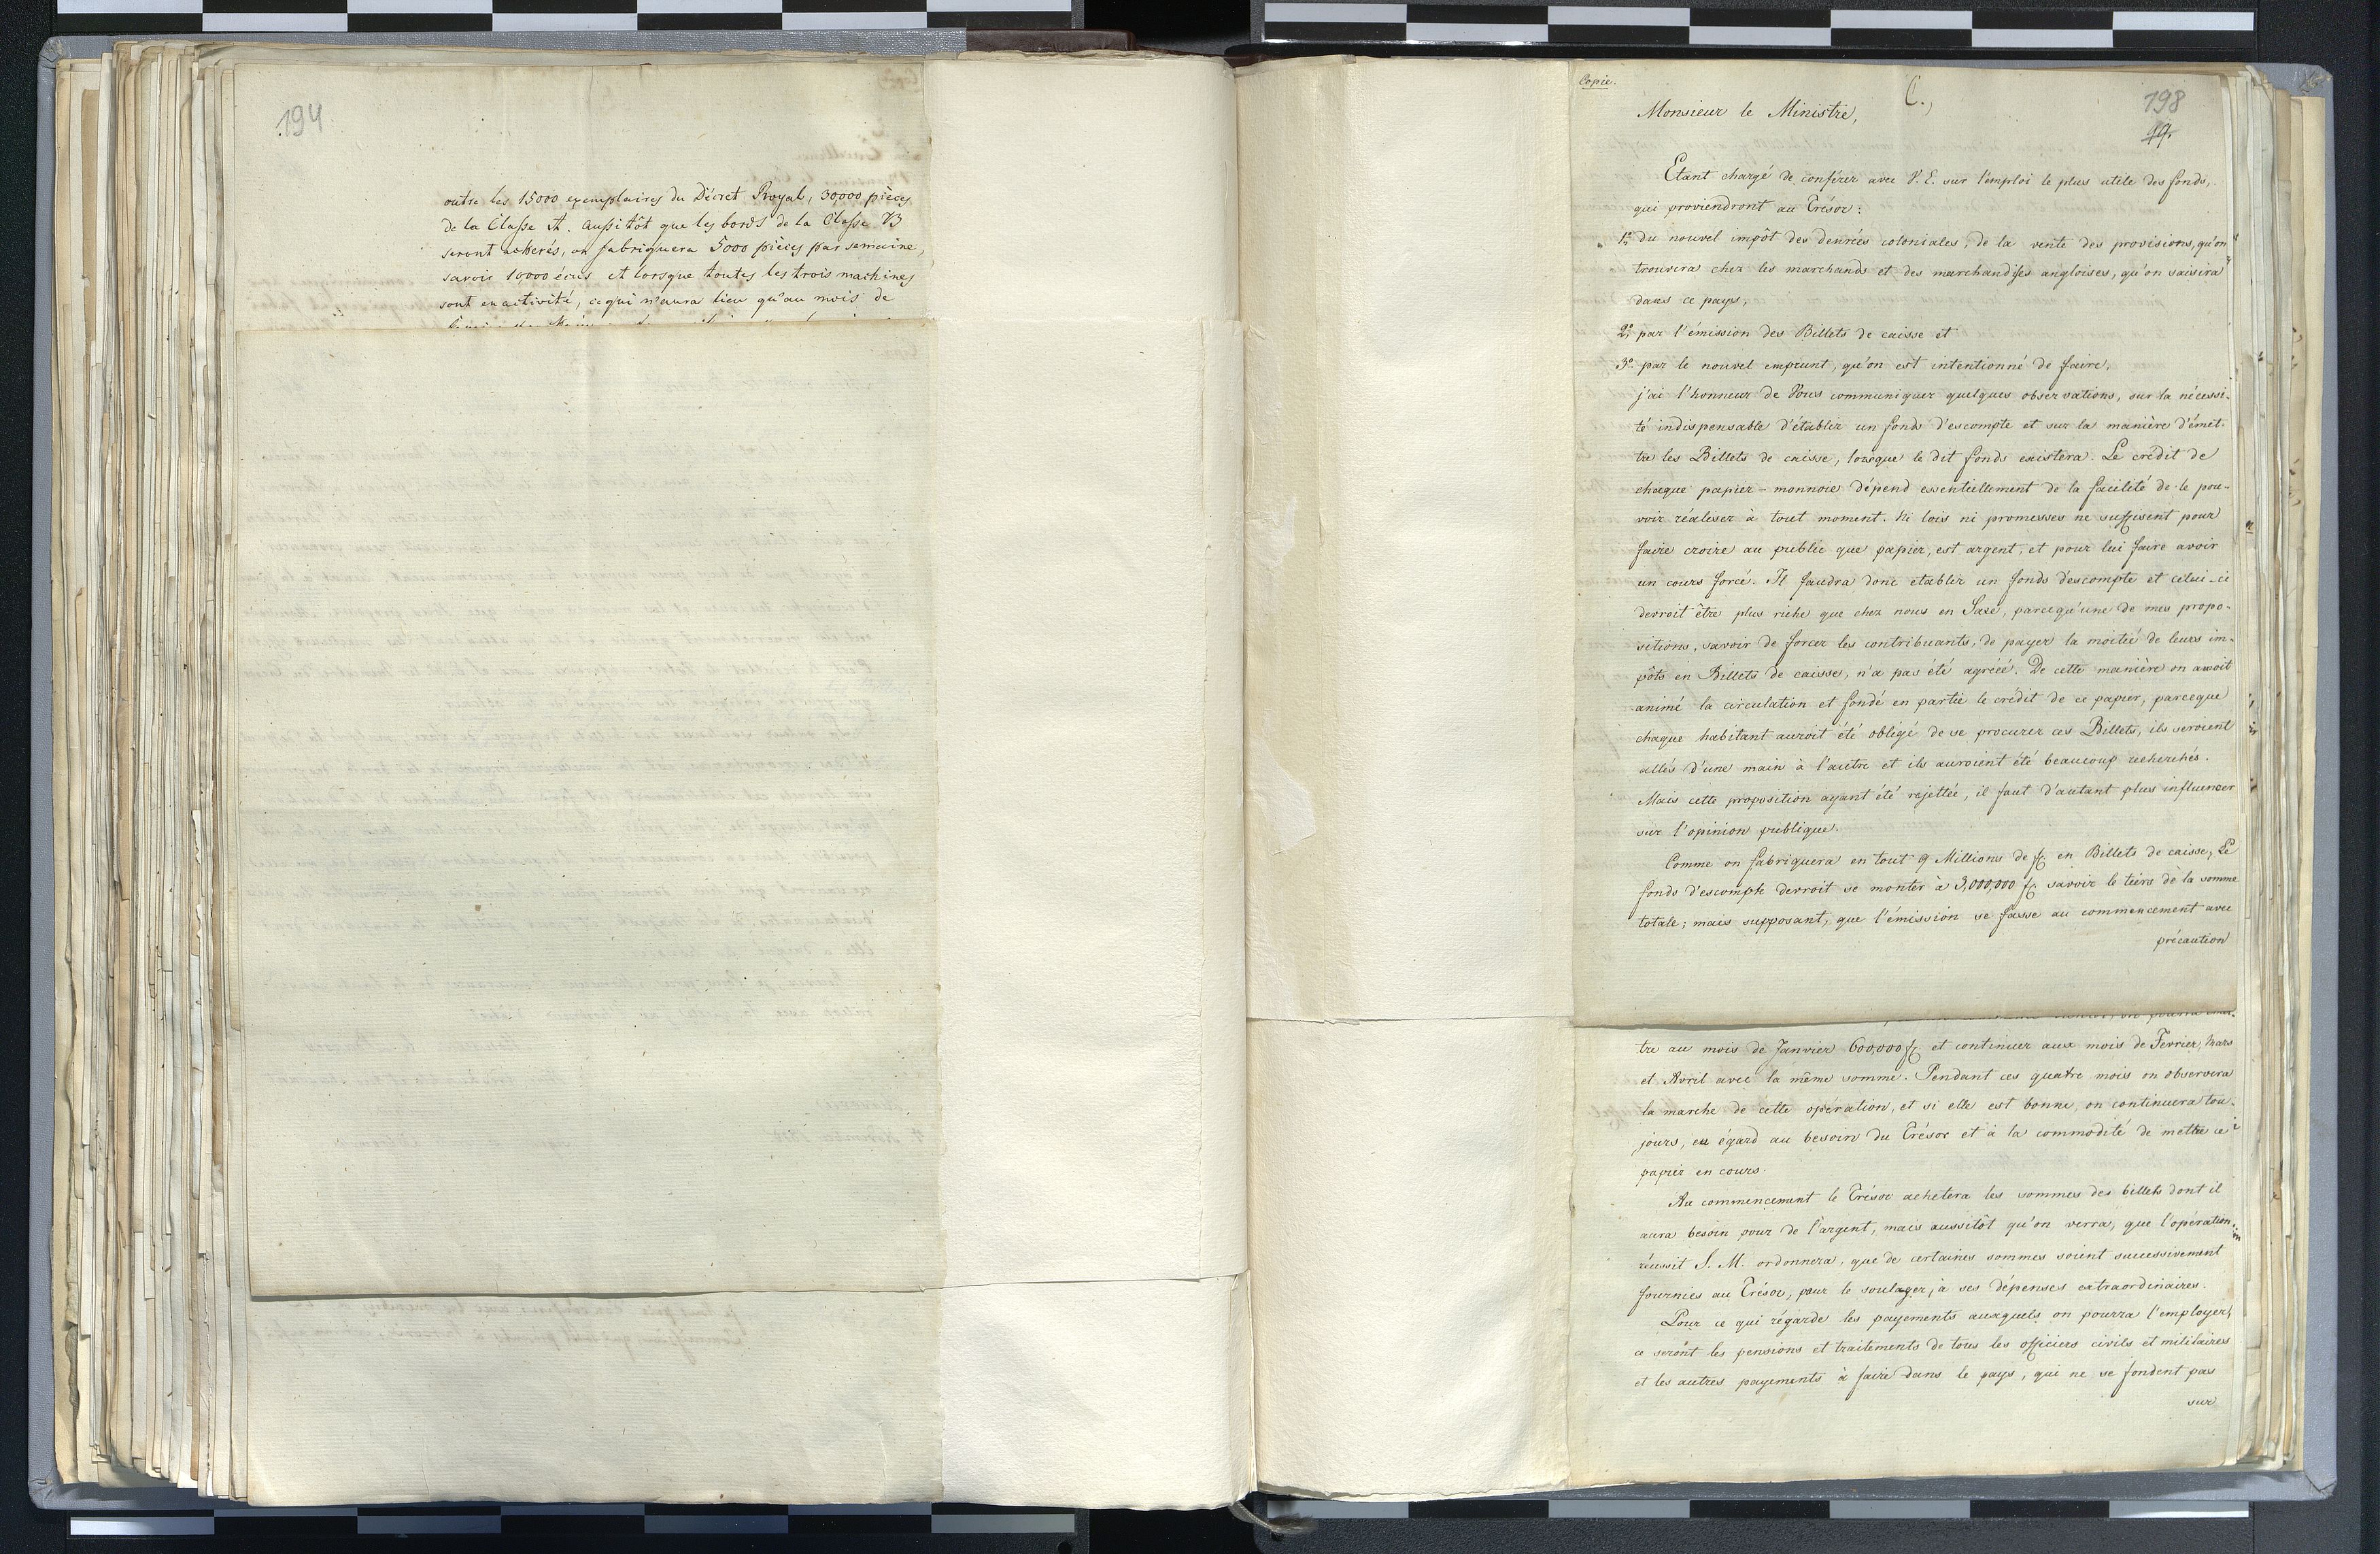 194
outre les 15000 exemplaires du Décret Royal, 30,000 pièces
de la Classe A. Aussitôt que les bords de la Classe B
seront acherés, on fabriquera 5000 pièces par semaine,
savoir 10,000 écus et lorsque toutes les trois machines
sont en activité, ce qui n'aura lieu qu'au mois de
Copie.
C.,
198
99.
Monsieur le Ministre,
Etant chargé de conférer avec V. E. sur l'emploi le plus utile des fonds,
qui proviendront au Trésor:
1º du nouvel impôt des denrées coloniales, de la vente des provisions, qu'on
trouvera chez les marchands et des marchandises angloises, qu'on saisira
dans ce pays,
2º par l'émission des Billets de caisse et
3º par le nouvel emprunt, qu'on est intentionné de faire,
j'ai l'honneur de Vous communiquer quelques observations, sur la nécessi-
té indispensable d'établir un fonds d'escompte et sur la manière d'émet-
tre les Billets de caisse, lorsque le dit fonds existera. Le crédit de
chaque papier-monnoie dépend essentiellement de la facilité de le pou-
voir réaliser à tout moment. Ni lois ni promesses ne suffisent pour
faire croire au public que papier, est argent, et pour lui faire avoir
un cours forcé. Il faudra donc etablir un fonds d'escompte et celui-ci
devroit être plus riche que chez nous en Saxe, parcequ'une de mes propo-
sitions, savoir de forcer les contribuants, de payer la moitié de leurs im-
pôts en Billets de caisse, n'a pas été agréeé. De cette manière on auroit
animé la circulation et fondé en partie le crédit de ce papier, parceque
chaque habitant auroit été obligé de se procurer ces Billets, ils seroient
allés d'une main à l'autre et ils auroient été beaucoup recherchés.
Mais cette proposition ayant été rejettée, il faut d'autant plus influencer
sur l'opinion publique.
Comme on fabriquera en tout 9 Millions de f. en Billets de caisse, Le
fonds d'escompte devroit se monter à 3,000,000 f. savoir le tiers de la somme
totale; mais supposant, que l'émission se fasse au commencement avec
précaution
tre au mois de Janvier 600,000 f. et continuer aux mois de Fevrier, Mars
et Avril avec la même somme. Pendant ces quatre mois on observera
la marche de cette opération, et si elle est bonne, on continuera tou-
jours, eu égard au besoin du Trésor et à la commodité de mettre ce
papier en cours.
Au commencement le Trésor achetera les sommes des billets dont il
aura besoin pour de l'argent, mais aussitôt qu'on verra, que l'opération
réussit S. M. ordonnera, que de certaines sommes soient successivement
fournies au Trésor, pour le soulager, à ses dépenses extraordinaires.
Pour ce qui régarde les payements auxquels on pourra l'employer,
ce serônt les pensions et traitements de tous les officiers civils et militaires
et les autres payements à faire dans le pays, qui ne se fondent pas
sur